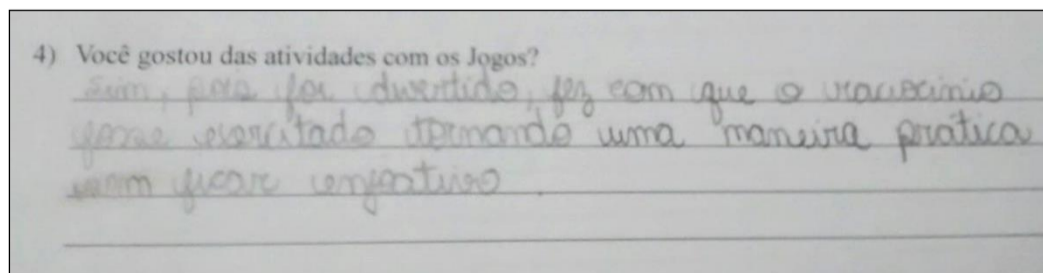 4) Você gostou das atividades com os Jogos?
Sim, pois foi divertido, fez com que o raciocinio
fosse exercitado tornando uma maneira prática
sem ficar